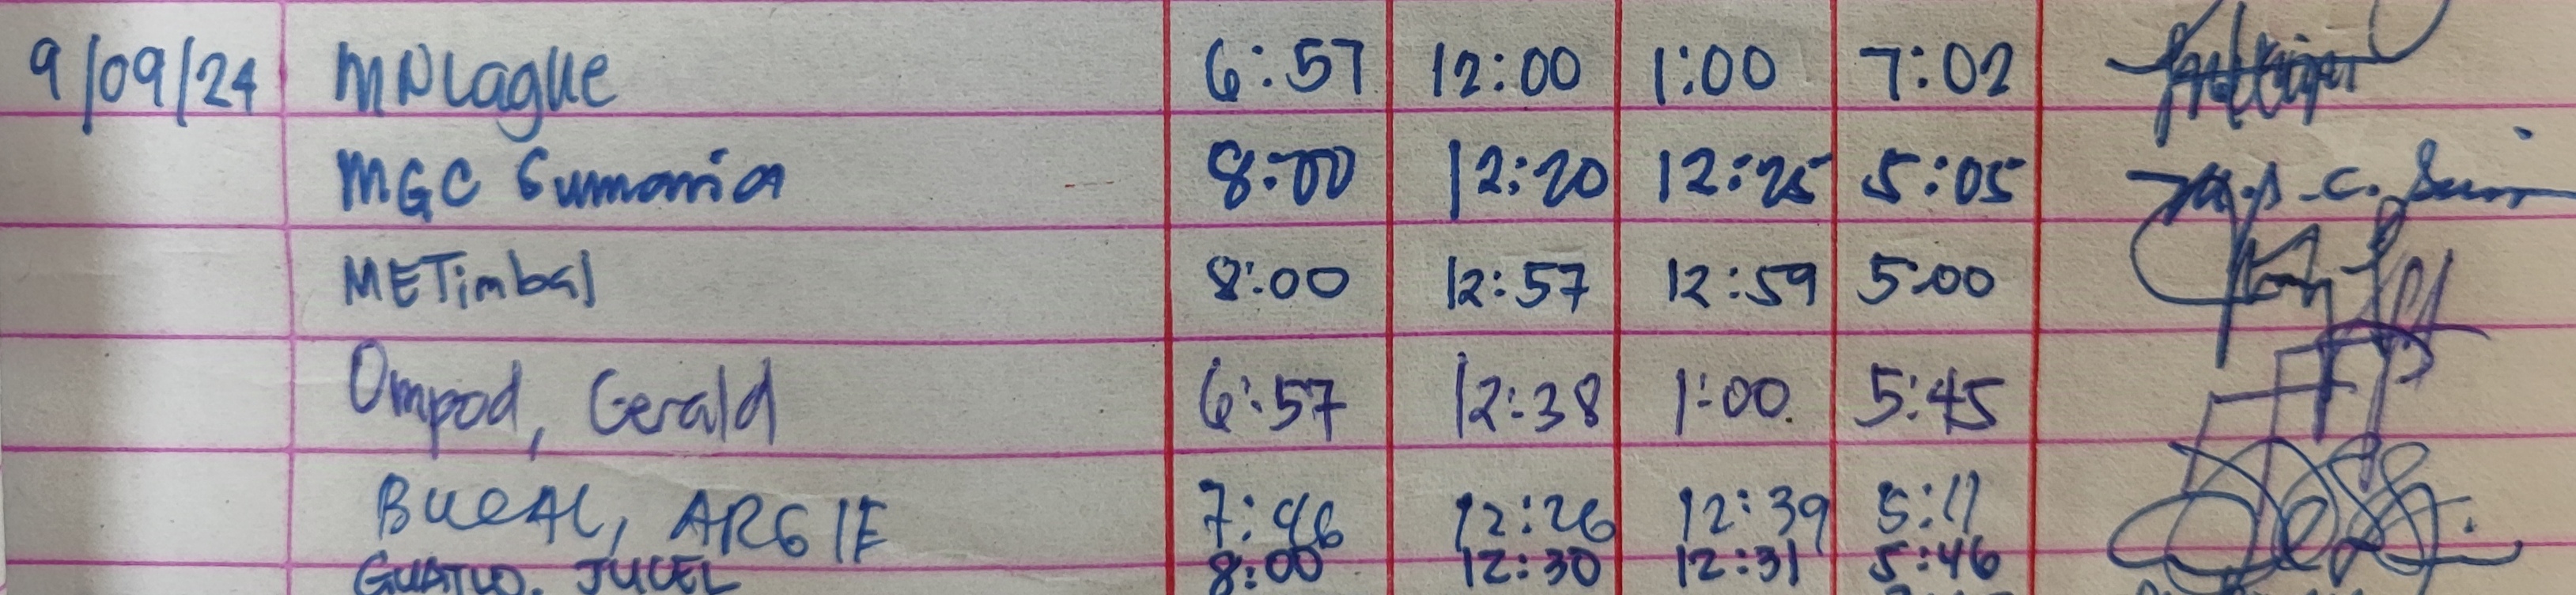 9/09/24 MNLague 6:57 12:00 1:00 7:02
MGC Sumania 8:00 12:20 12:25 5:05
METimbal 8:00 12:57 12:59 5:00
Ompod, Gerald 6:57 12:38 1:00 5:45
BUCAL, ARGIE 7:46 12:26 12:39 5:11
JUCEL 8:00 12:30 12:31 5:46